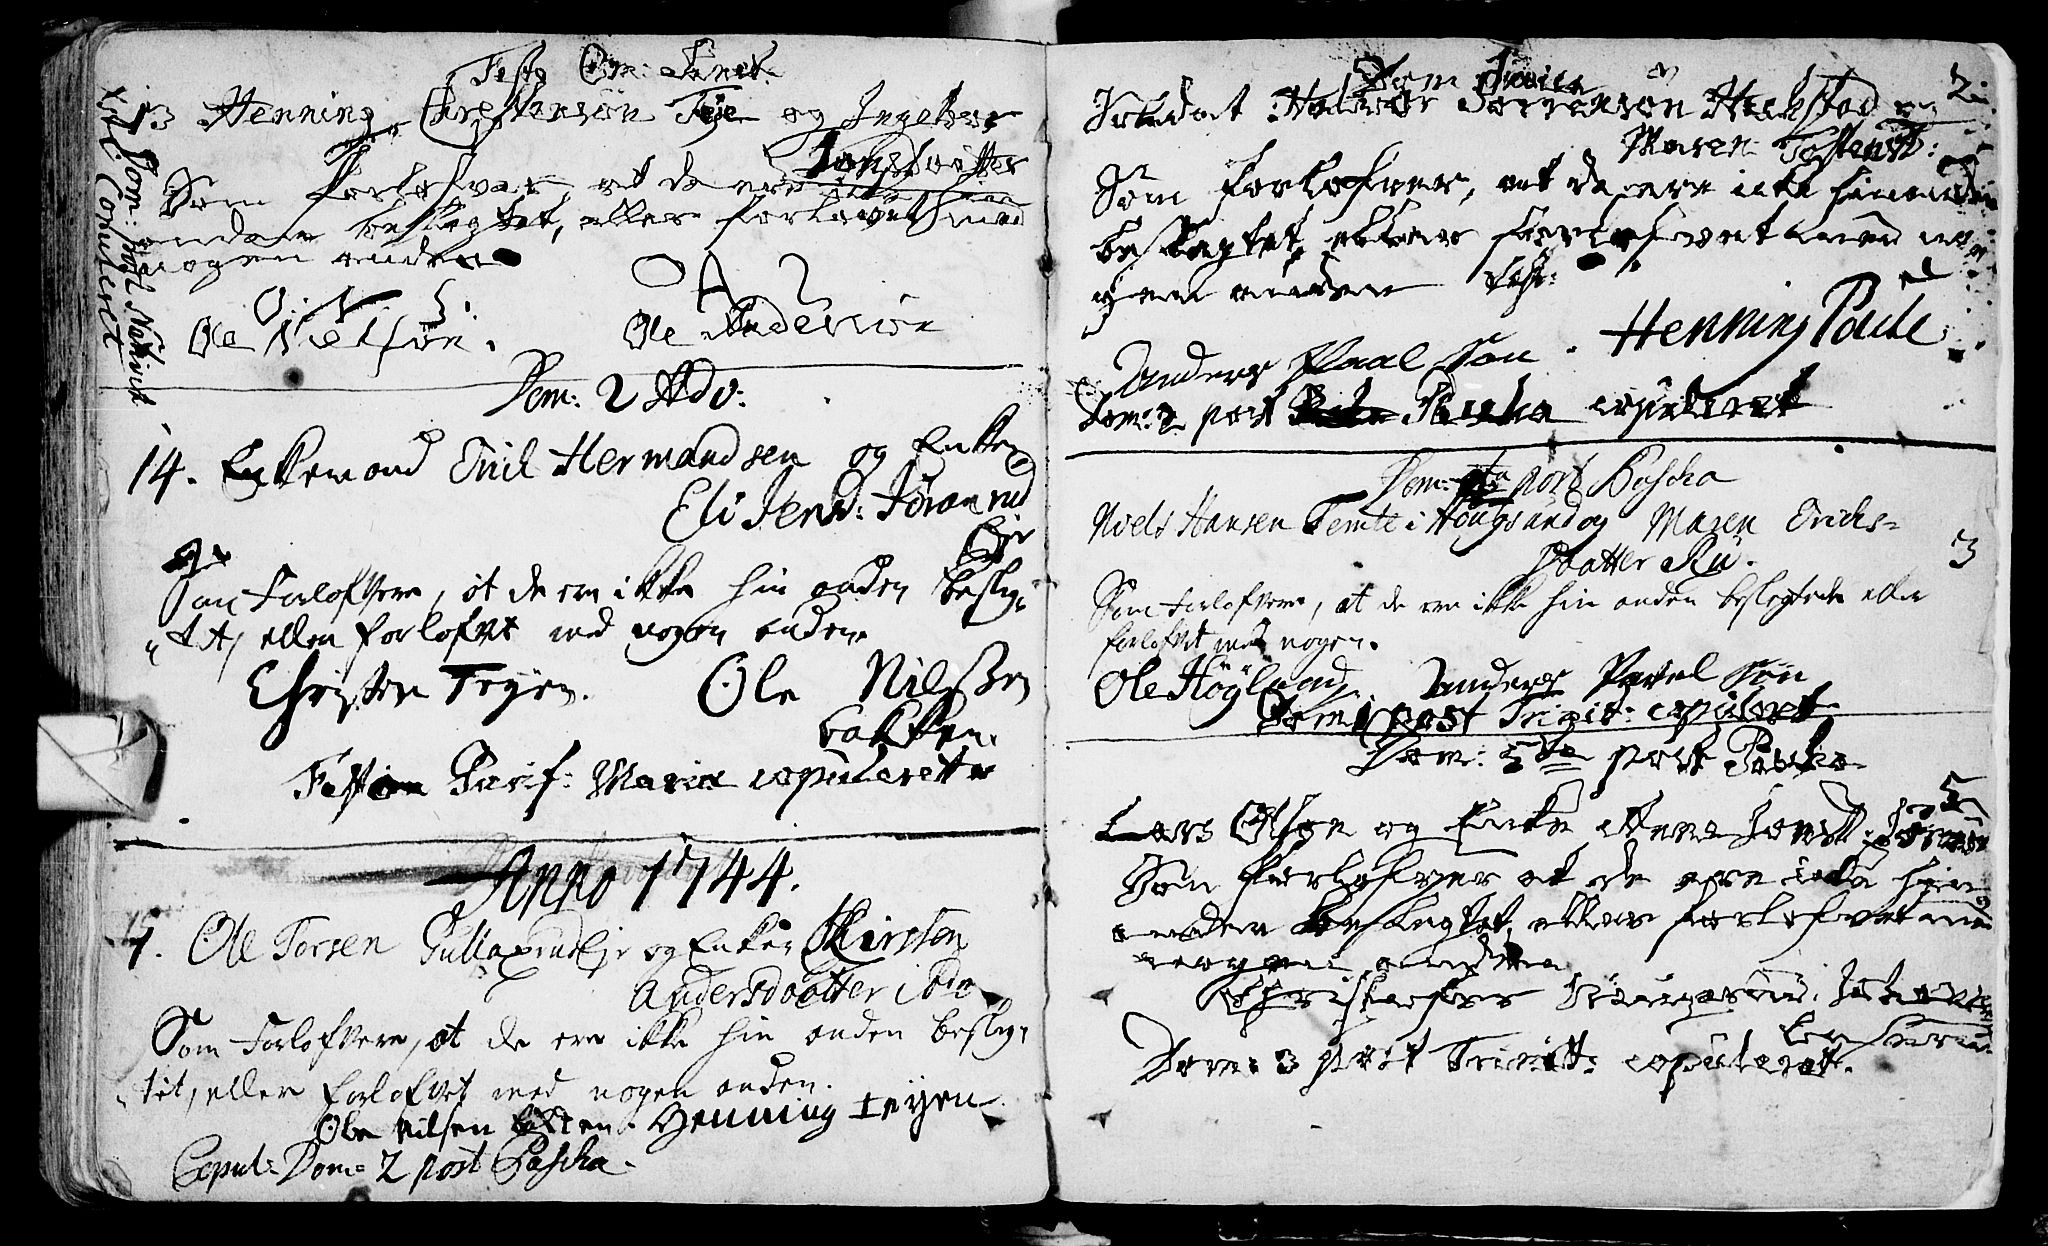 Festo Om: Sanct.
13 Henning Christensøn Teje og Ingebor
Jonsdaatter
Som Forlofver, at de ere
anden beslegtet, eller forlovet med
nogen anden
O. N. S. O A S
Ole Nielsøn. Ole Andersøn
Dom: post Nativit
Copuleret
Dom: 2 Adv:
14. Enkemand Erik Hermandsen og Enken
Eli Jensd: Joranrud
Eje
Som Forlofvere, at de ere ikke hin anden besleg,
"tet, eller forlofvet med nogen anden.
Christen Teyen. Ole Nilssen
bakken.
Festo Purif: Mariæ copulerette
Anno 1744.
1. Ole Torsen Gullaxrud Eje og Enken Kirsten
Andersdaatter ibid
Som Forlofvere, at de ere ikke hin anden besleg,
"tet, eller forlofvet med nogen anden.
Ole Nilsen bakken. Henning Teyen
Copul: Dom: 2 post Pascha.
2
Soldat Halvor Torrensøn Hachstad og
Maren Tostensd:
Som forlofver, at de ere icke hinanden
beslegtet, eller forlofvet med no
gen anden
Anders Paalsøn. Henning Pade
Dom: 2 post Pascha copuleret
Dom: 4ta post Pascha
3
Niels Hansen Temte i Hougsund og Maren Erichs-
Daatter Ru.
Som Forlofvere, at de ere ikke hin anden beslegtede eller
forlofvet med nogen.
Ole Höyland. Anders Pavelsøn
Dom 1 post Trinit: copuleret
Dom: 5te post Pascha
5
Lars Olsøn og Enke Anne Jonsd:
Som forlofver at de ere icke hin
anden beslegtet, eller forlofvet med
nogen anden
Christoffer
Dom: 3 post Trinit: copuleret.